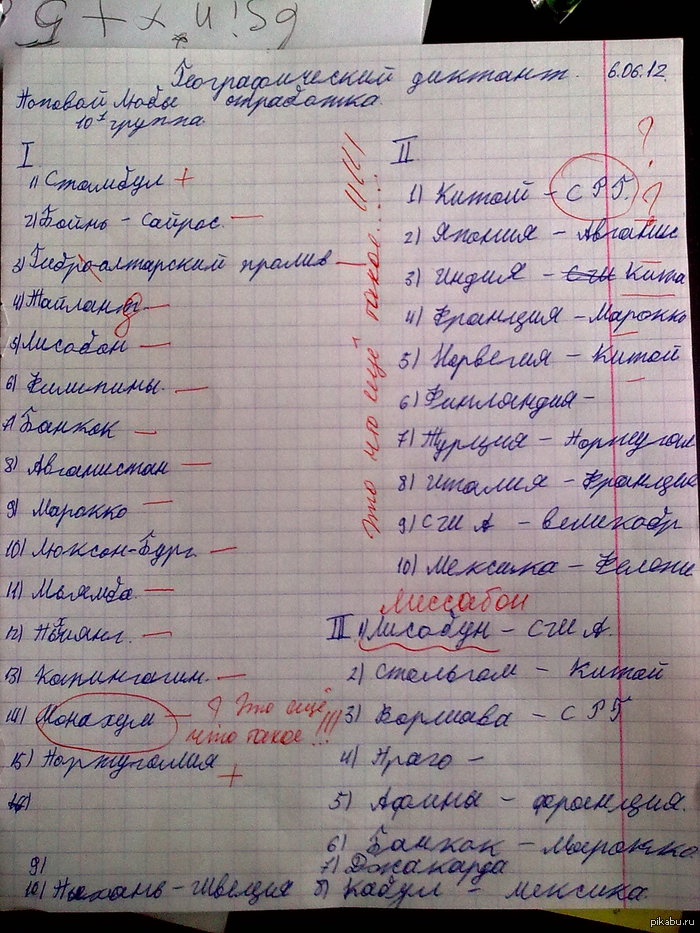 Географический диктант. 6.06.12
Поповой Любы отработка.
10¹ группа.
I
1) Стамбул +
2) Бойнь - Сайрос. —
3) Гиброалтарский пролив —
4) Тайланд —
5) Лисабон —
6) Филипины. —
7) Банкок —
8) Авганистан —
9) Марокко —
10) Люксон-Бург. —
11) Мьямба. —
12) —
13) Капингагим. —
14) Монахум — ? Это ещё
что такое...!!!
15) Португалия +
16)
9)
10) - Швеция
Это что ещё такое....!!!!
II
1) Китай - СРГ. ? ?
2) Япония - Авганис
3) Индия - Кита
4) Франция - Марокко
5) Норвегия - Китай
6) Финляндия -
7) Турция - Португал
8) Италия - Франция
9) США - великобр
10) Мексика -
Лиссабон
III 1) Лисабун - США.
2) Стольгом - Китай
3) Воршава - СРГ
4) Праго -
5) Афины - франция.
6) Банкок - Марокко
7) Джакарда
8) Кабул - мексика.
pikabu.ru